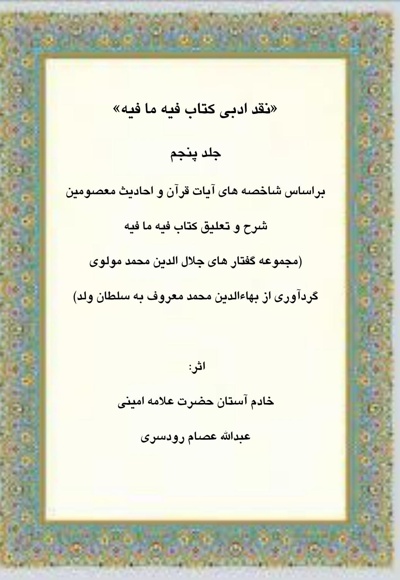 «نقد ادبی کتاب فیه ما فیه»
جلد پنجم
براساس شاخصه های آیات قرآن و احادیث معصومین
شرح و تعلیق کتاب فیه ما فیه
(مجموعه گفتار های جلال الدین محمد مولوی
گردآوری از بهاءالدین محمد معروف به سلطان ولد)
اثر:
خادم آستان حضرت علامه امینی
عبدالله عصام رودسری